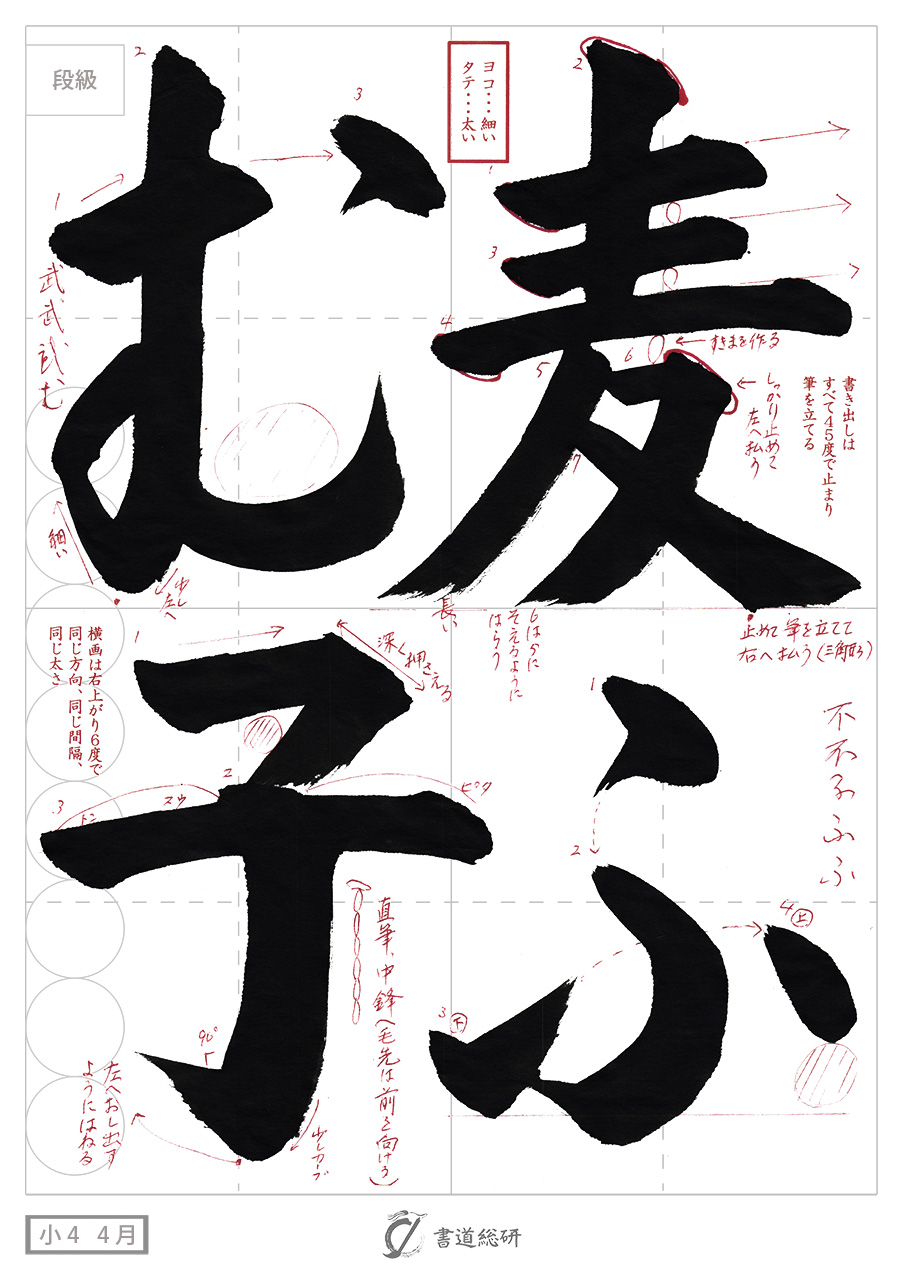 麦ふ
む子
段級
ヨコ・・・細い
タテ・・・太い
1
2
3
4
5
6
7
すきまを作る
しっかり止めて
左へ払う
書き出しは
すべて45度で止まり
筆を立てる
止めて筆を立てて
右へ払う(三角形)
6はらに
そえるように
はらう
長い
1
2
3下
4上
不
不
ふ
ふ
1
2
3
武
武
武
む
細い
少し
左へ
横画は右上がり6度で
同じ方向、同じ間隔、
同じ太さ
1
2
3
深く押さえる
トン
スウ
ピタ
直筆、中鋒(毛先は前を向ける)
90°
少しカーブ
左へおし出す
ようにはねる
小4 4月
書道総研